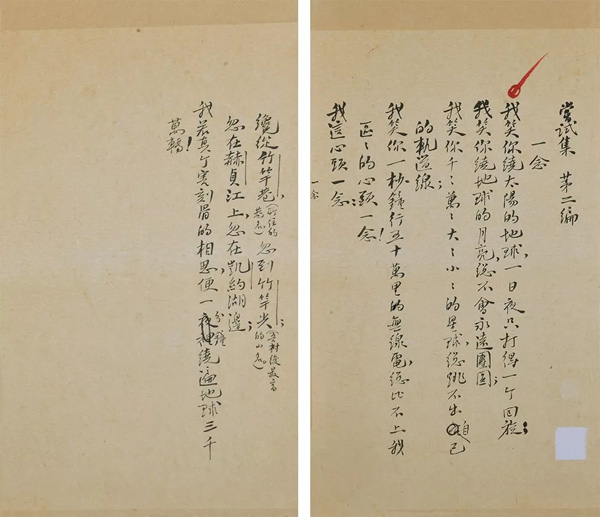 嘗試集 第二編
一念
我笑你繞太陽的地球,一日夜只打得一个回旋;
我笑你繞地球的月亮,總不會永遠團圓;
我笑你千〻萬〻大〻小〻的星球,總跳不出自己
的軌道線;
我笑你一秒鐘行五十萬里的無線電,總比不上我
區〻的心頭一念!
我這心頭一念:
一念
纔從竹竿巷,(所住的巷名)忽到竹竿尖;(吾村後最高的山名)
忽在赫貞江上,忽在凱約湖邊;
我若真个害刻骨的相思,便一分鐘繞遍地球三千
萬轉!